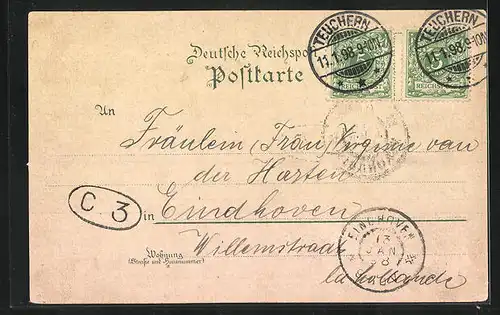 Deutsche Reichspo
Postkarte
TEUCHERN
11.1.98. 9-10N.
TEUCHERN
11.1.98. 9-10N
REICHSPOST
An
Fräulein (Frau) Virginie van
der Harten
C 3
in Eindhoven
Wohnung
(Straße und Hausnummer)
Willemstraat
la hollande
EINDHOVEN
13
JAN
98